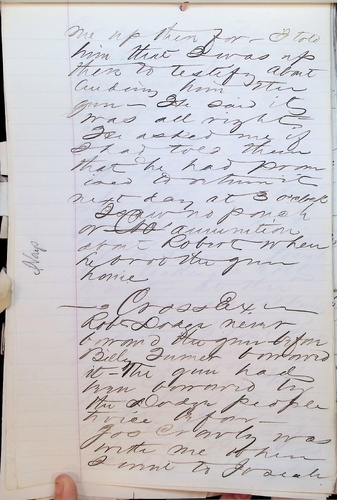 me up then for - I told
him that I was up
there to testify about
him the
gun - He said it
was all right
He asked me if
I had told them
that he had prom
ised to return it
next day at 3 oclock
I saw no pouch
or ammunition
about Robert when
he brot the gun
home
Cross Ex.
Rob Dodge never
borrowed the gun before
Billy Turner borrowed
it - The gun had
been borrowed by
the Dodge people
twice before -
Jos Crowly was
with me when
I went to Josiah